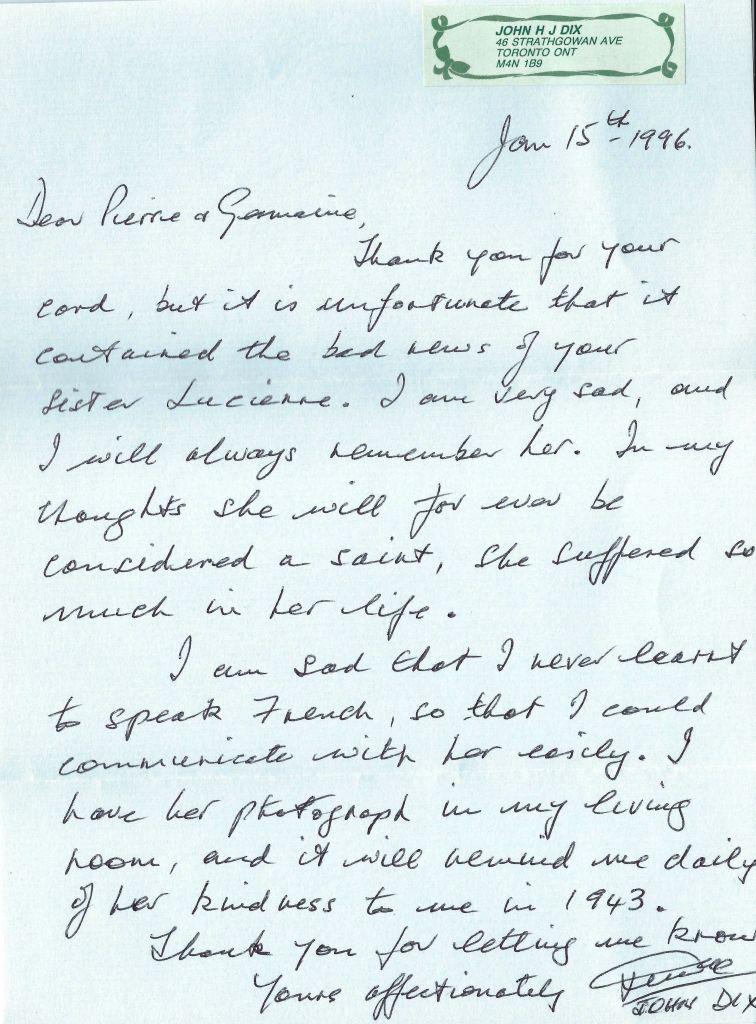 JOHN H J DIX
46 STRATHGOWAN AVE
TORONTO ONT
M4N 1B9
Jan 15th 1996.
Dear Pierre & Germaine,
Thank you for your
card, but it is unfortunate that it
contained the bad news of your
sister Lucienne. I am very sad, and
I will always remember her. In my
thoughts she will for ever be
considered a saint, she suffered so
much in her life.
I am sad that I never learnt
to speak French, so that I could
communicate with her easily. I
have her photograph in my living
room, and it will remind me daily
of her kindness to me in 1943.
Thank you for letting me know
Yours affectionately
JOHN DIX